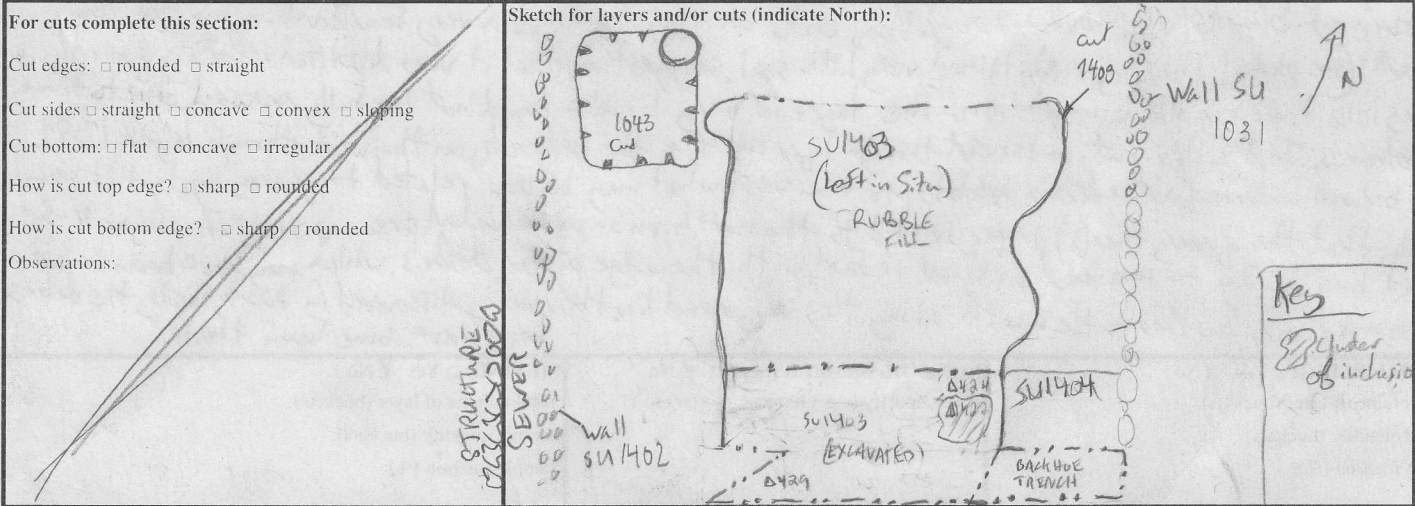 For cuts complete this section:
Cut edges: □ rounded □ straight
Cut sides □ straight □ concave □ convex □ sloping
Cut bottom: □ flat □ concave □ irregular
How is cut top edge? □ sharp □ rounded
How is cut bottom edge? □ sharp □ rounded
Observations:
Sketch for layers and/or cuts (indicate North):
1043
Cut
SU1403
(Left in Situ)
RUBBLE
FILL
cut
1409
Wall SU
1031
N
Key
Cluster
of inclusio
STRUCTURE
SEWER
wall
SU1402
SU1403
(EXCAVATED)
Δ424
Δ422
SU1404
Δ429
BACKHOE
TRENCH